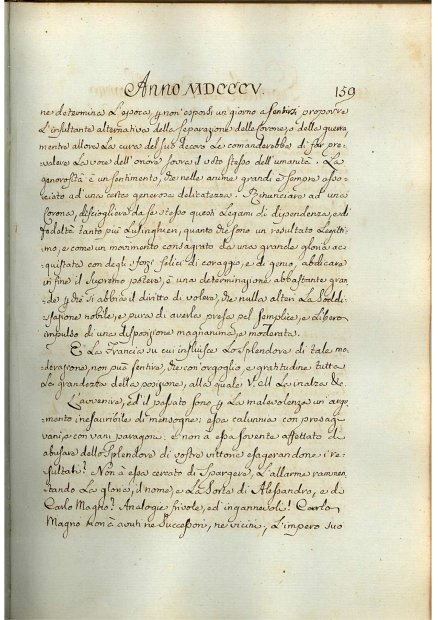 Anno MDCCCV. 159
ne determina l'epoca, p non esporsi un giorno a sentirsi proporre
l'insultante alternativa della separazione delle corone, o della guerra
mentre allora la cura del suo decoro le comanderebbe di far pre=
valere la voce dell'onore sovra il voto stesso dell'umanità. La
generosità è un sentimento, che nelle anime grandi è sempre asso=
=ciato ad una certa generosa delicatezza. Rinunciare ad una
Corona, disciogliere da se stesso questi legami di dipendenza, e di
fedeltà tanto più lusinghieri, quanto che sono un resultato legitti=
mo, e come un movimento consagrato da una grande gloria ac=
=quistata con degli sforzi felici di coraggio, e di genio, abdicare
in fine il supremo potere, è una determinazione abbastante gran=
de p che si abbia il diritto di volere, che nulla alteri la soddi=
=sfazione nobile, e pura di averla presa pel semplice, e libero
impulso di una disposizione magnanima, e moderata.
E la Francia su cui influisce lo splendore di tale mo=
derazione, non può sentire, che con orgoglio, e gratitudine tutta
la grandezza della posizione, alla quale V. M. la inalza
L'avvenire, ed il passato sono p la malevolenza un argo=
mento inesauribile di mensogne: essa calunnia con presag=
=vani, e con vani paragoni. E non à essa sovente affettato di
abusare dello splendore di vostre vittorie esagerandone i re=
sultati? Non à essa cercato di spargere l'allarme rammen=
=tando la gloria, il nome, e la sorte di Alessandro, e di
Carlo Magno? Analogie frivole, ed ingannevoli! Carlo
Magno non à avuti ne successori, ne vicini, l'impero suo